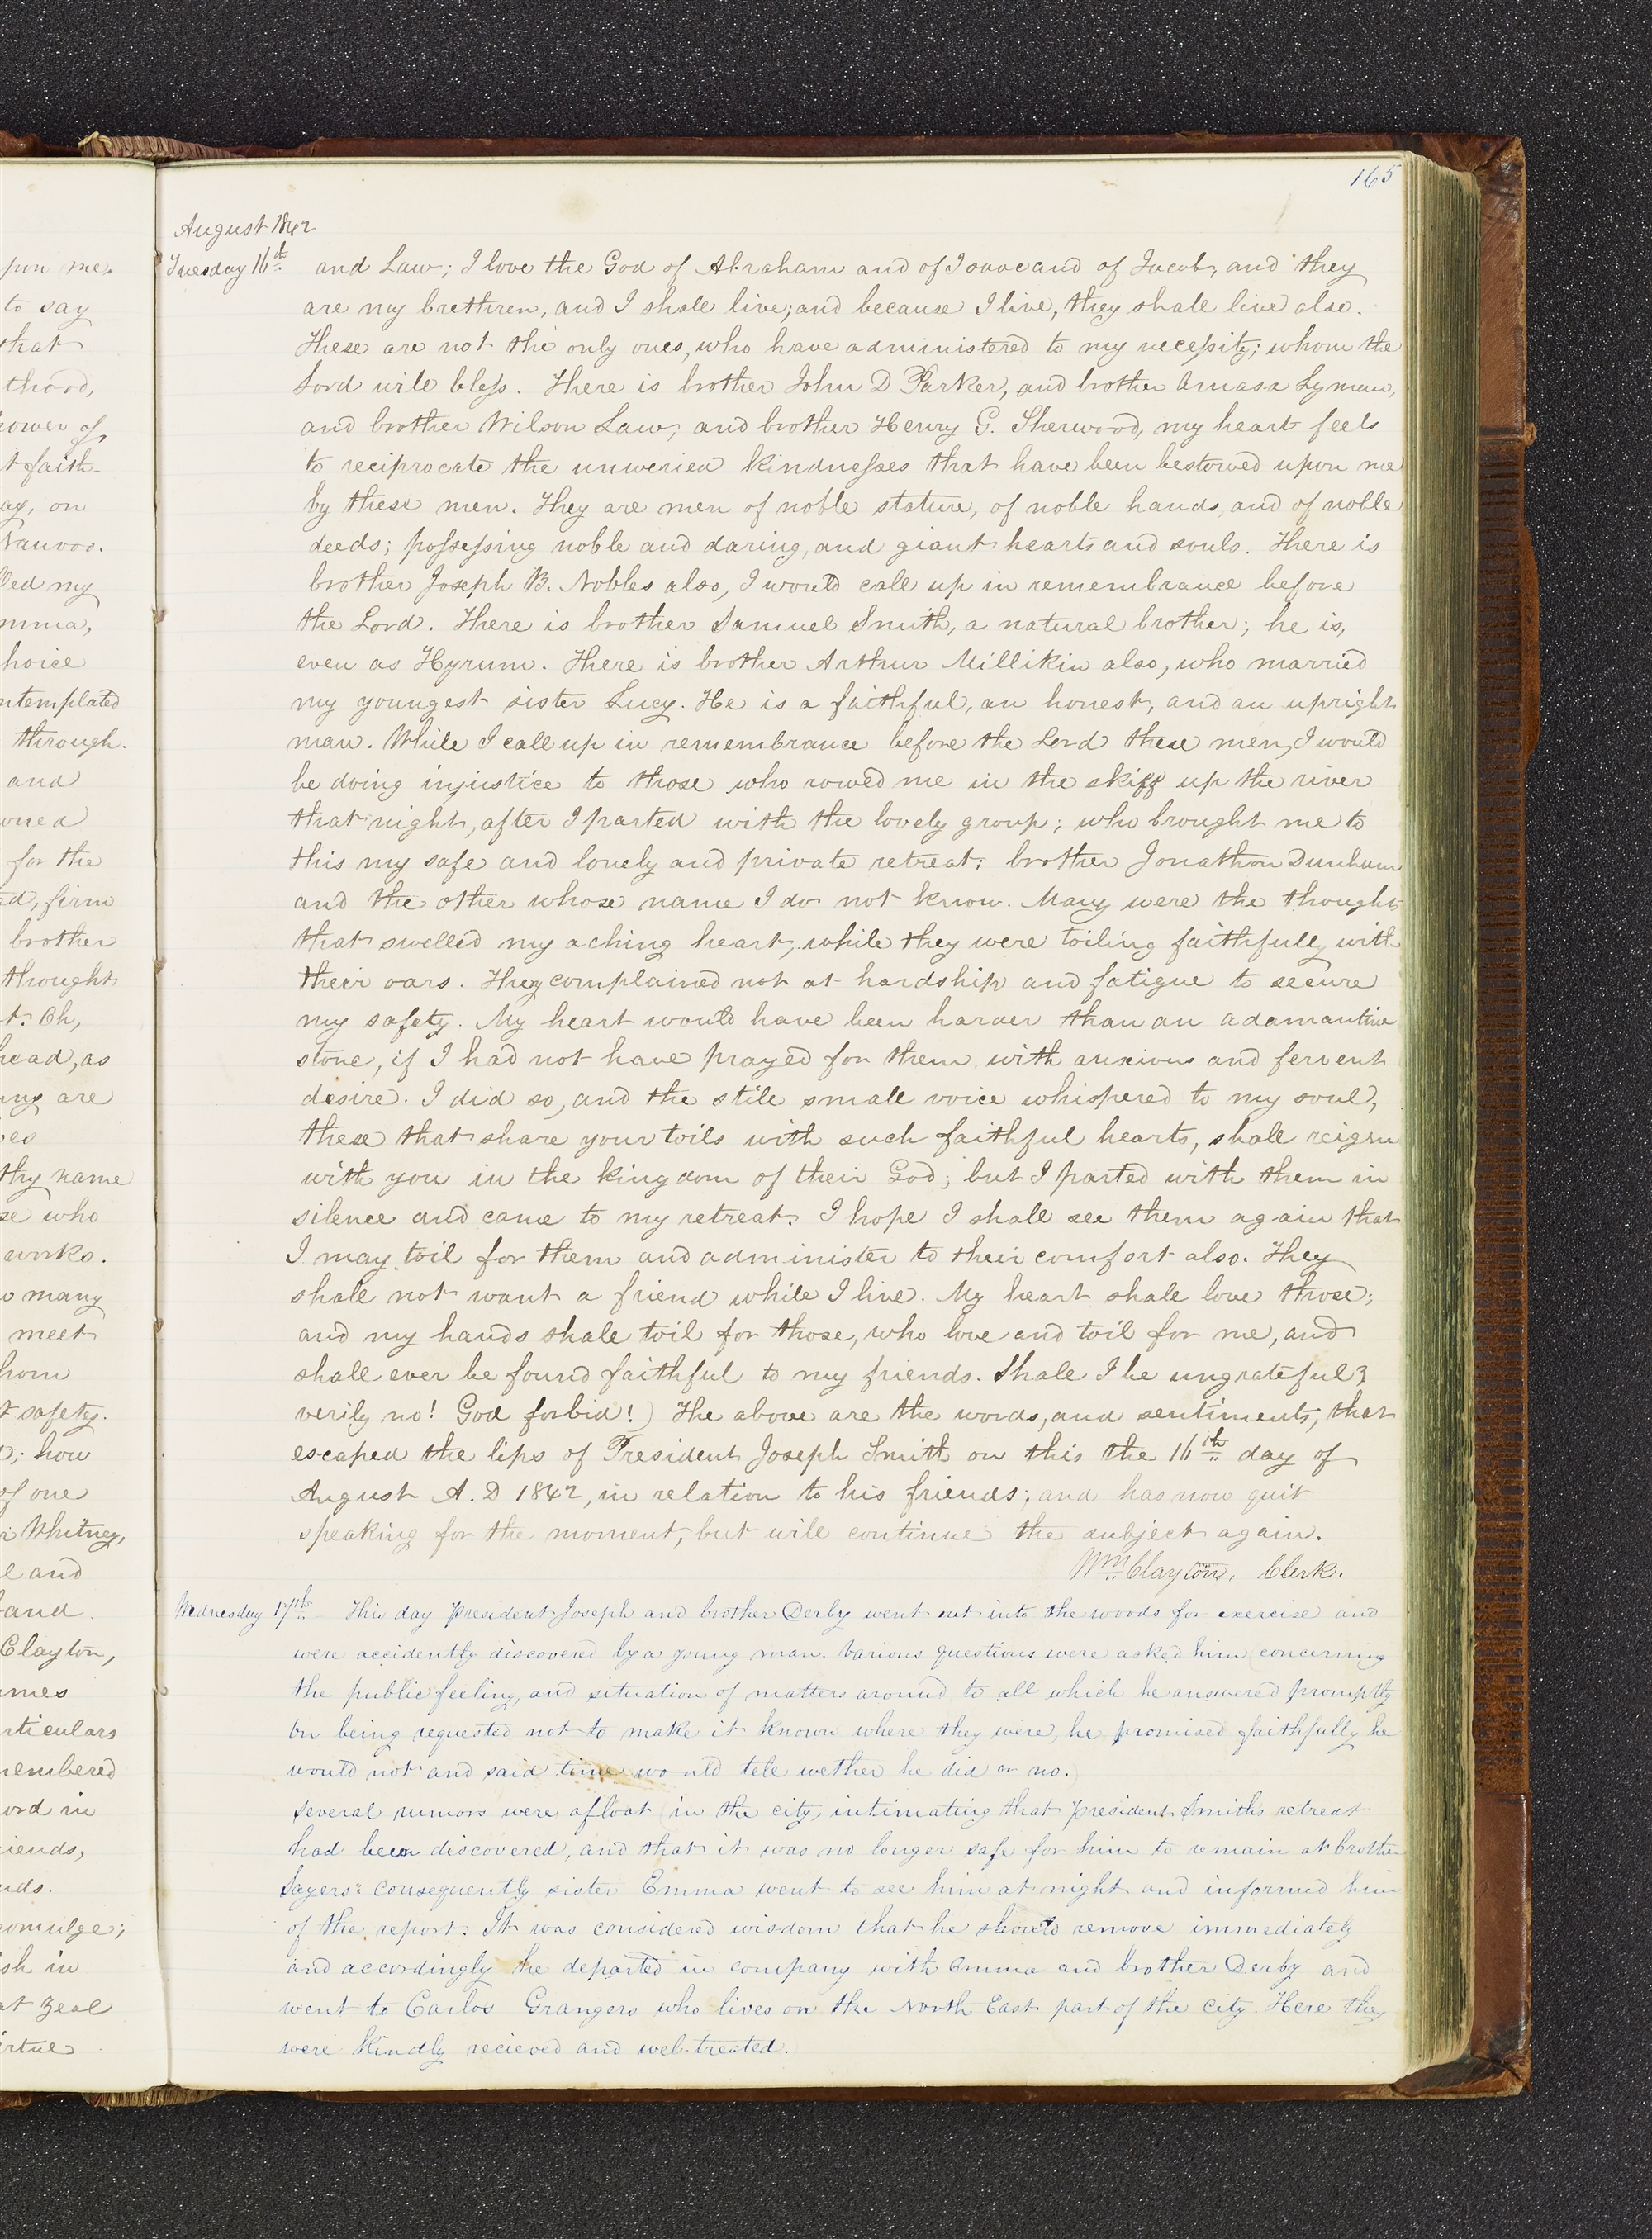 165
August 1842
Tuesday 16th and Law; I love the God of Abraham and of Isaac and of Jacob, and they
are my brethren, and I shall live; and because I live, they shall live also.
These are not the only ones, who have administered to my necessity; whom the
Lord will bless. There is brother John D Parker, and brother Amasa Lyman,
and brother Wilson Law, and brother Henry G. Sherwood, my heart feels
to reciprocate the unweried kindnesses that have been bestowed upon me
by these men. They are men of noble stature, of noble hands, and of noble
deeds; possessing noble and daring, and giant hearts and souls. There is
brother Joseph B. Nobles also, I would call up in remembrance before
the Lord. There is brother Samuel Smith, a natural brother; he is,
even as Hyrum. There is brother Arthur Millikin also, who married
my youngest sister Lucy. He is a faithful, an honest, and an upright
man. While I call up in remembrance before the Lord these men, I would
be doing injustice to those who rowed me in the skiff up the river
that night, after I parted with the lovely group; who brought me to
this my safe and lonely and private retreat; brother Jonathon Dunham
and the other whose name I do not know. Many were the thoughts
that swelled my aching heart, while they were toiling faithfully with
their oars. They complained not at hardship and fatigue to secure
my safety. My heart would have been harder than an adamantine
stone, if I had not have prayed for them with anxious and fervent
desire. I did so, and the still small voice whispered to my soul,
these that share your toils with such faithful hearts, shall reign
with you in the kingdom of their God; but I parted with them in
silence and came to my retreat. I hope I shall see them again that
I may toil for them and administer to their comfort also. They
shall not want a friend while I live. My heart shall love those;
and my hands shall toil for those, who love and toil for me, and
shall ever be found faithful to my friends. Shall I be ungrateful?
verily no! God forbid!) The above are the words, and sentiments, that
escaped the lips of President Joseph Smith on this the 16th day of
August A. D 1842, in relation to his friends; and has now quit
speaking for the moment, but will continue the subject again.
Wm Clayton, Clerk.
Wednesday 17th This day President Joseph and brother Derby went out into the woods for exercise and
were accidently discovered by a young man. Various questions were asked him (concerning
the public feeling, and situation of matters around to all which he answered promptly
On being requested not to make it known where they were, he promised faithfully he
would not and said time would tell wether he did or no.)
Several rumors were afloat (in the city, intimating that President Smiths retreat
had been discovered, and that it was no longer safe for him to remain at brother
Sayers: consequently sister Emma went to see him at night and informed him
of the report. It was considered wisdom that he should remove immediately
and accordingly he departed in company with Emma and brother Derby and
went to Carlos Grangers who lives on the North East part of the city. Here they
were kindly recieved and well treated.
pon me.
to say
that
thood,
power of
faith
ay, on
Nauvoo.
lled my
mma,
hoice
ntemplated
through.
and
for the
ed, firm
brother
thought
t. Oh,
head, as
ing are
thy name
se who
works.
o many
meet
hom
t safety.
how
of one
Whitney,
l and
and
Clayton,
ames
rticulars
membered
ord in
riends,
nds.
romulge;
ish in
at zeal
irtue